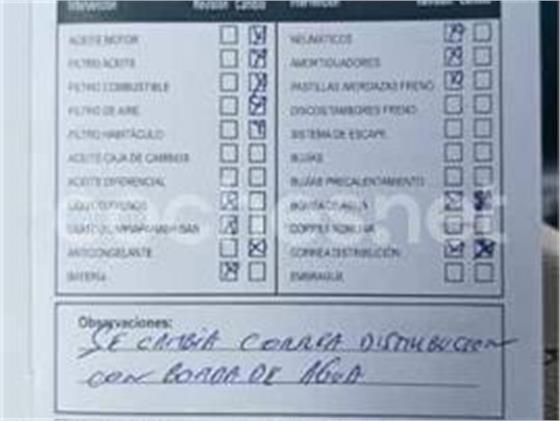 Intervención Revisión Cambio Intervención Revisión Cambio
ACEITE MOTOR NEUMÁTICOS
FILTRO ACEITE AMORTIGUADORES
FILTRO COMBUSTIBLE PASTILLAS MORDAZAS FRENO
FILTRO DE AIRE DISCOS TAMBORES FRENO
FILTRO HABITÁCULO SISTEMA DE ESCAPE
ACEITE CAJA DE CAMBIOS BUJÍAS
ACEITE DIFERENCIAL BUJÍAS PRECALENTAMIENTO
BOMBA DE AGUA
coches.net
ANTICONGELANTE CORREA DISTRIBUCIÓN
BATERÍA EMBRAGUE
Observaciones:
SE CAMBIA CORREA DISTRIBUCION
CON BOMBA DE AGUA